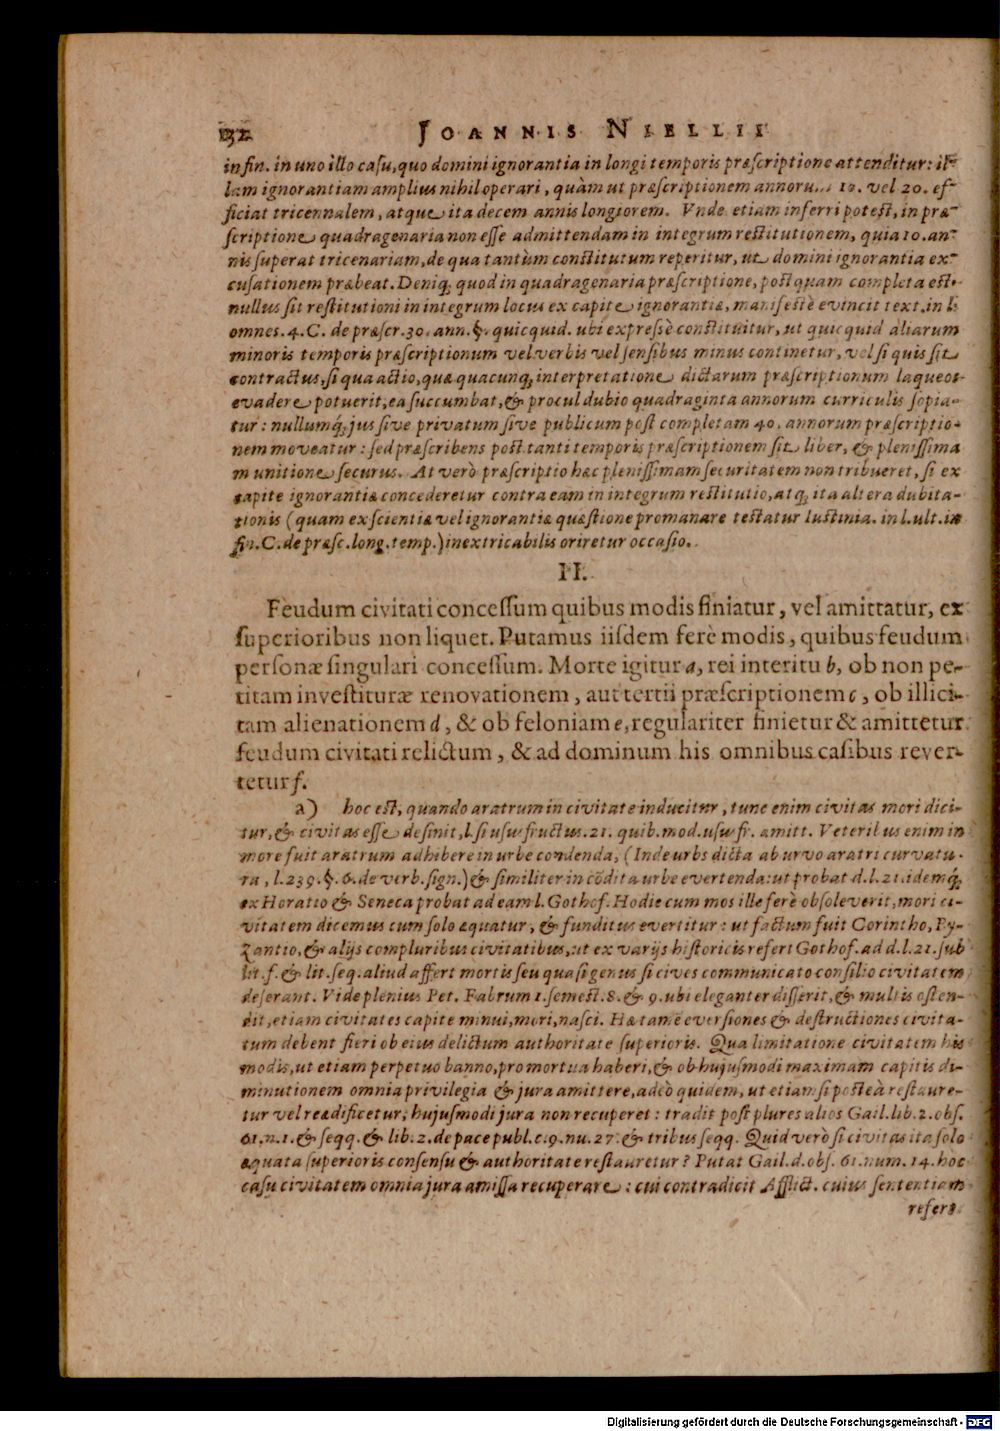 132 JOANNIS NIELLII
in fin. in uno illo casu, quo domini ignorantia in longi temporis præscriptione attenditur: il-
lam ignorantiam amplius nihil operari, quàm ut præscriptionem 10. vel 20. ef-
ficiat tricennalem, atque ita decem annis longiorem. Vnde etiam inferri potest, in præ-
scriptione quadragenaria non esse admittendam in integrum restitutionem, quia 10. an-
nis superat tricenariam, de qua tantùm constitutum reperitur, ut domini ignorantia ex-
cusationem præbeat. Deniq; quod in quadragenaria præscriptione, postquam completa est,
nullus sit restitutioni in integrum locus ex capite ignorantiæ, manifestè evincit text. in l.
omnes. 4. C. de præscr. 30. ann. §. quicquid. ubi expressè constituitur, ut quicquid aliarum
minoris temporis præscriptionum vel verbis vel sensibus minus continetur, vel si quis sit
contractus, si qua actio, quæ quacunq; interpretatione dictarum præscriptionum laqueos
evadere potuerit, ea succumbat, & procul dubio quadraginta annorum curriculis sopia-
tur: nullumq; jus sive privatum sive publicum post completam 40. annorum præscriptio-
nem moveatur: sed præscribens post tanti temporis præscriptionem sit liber, & plenissima
munitione securus. At verò præscriptio hæc plenissimam securitatem non tribueret, si ex
capite ignorantiæ concederetur contra eam in integrum restitutio, atq; ita altera dubita-
tionis (quam ex scientiæ vel ignorantiæ quæstione promanare testatur Iustinia. in l. ult. in
fin. C. de præsc. long. temp.) inextricabilis oriretur occasio.
II.
Feudum civitati concessum quibus modis finiatur, vel amittatur, ex
superioribus non liquet. Putamus iisdem ferè modis, quibus feudum
personæ singulari concessum. Morte igitur a, rei interitu b, ob non pe-
titam investituræ renovationem, aut tertii præscriptionem c, ob illici-
tam alienationem d, & ob feloniam e, regulariter finietur & amittetur
feudum civitati relictum, & ad dominum his omnibus casibus rever-
tetur f.
a) hoc est, quando aratrum in civitate inducitur, tunc enim civitas mori dici-
tur, & civitas esse desinit, l. si ususfructus. 21. quib. mod. ususfr. amitt. Veteribus enim in
more fuit aratrum adhibere in urbe condenda, (Inde urbs dicta ab urvo aratri curvatu-
ra, l. 239. §. 6. de verb. sign.) & similiter in cōdita urbe evertenda: ut probat d. l. 21. idemq;
ex Horatio & Seneca probat ad eam l. Gothof. Hodie cum mos ille ferè obsoleverit, mori ci-
vitatem dicemus cum solo æquatur, & funditus evertitur: ut factum fuit Corintho, By-
zantio, & alijs compluribus civitatibus, ut ex varijs historicis refert Gothof. ad d. l. 21. sub
lit. f. & lit. seq. aliud affert mortis seu quasi genus si cives communicato consilio civitatem
deserant. Vide plenius Pet. Fabrum 1. semest. 8. & 9. ubi eleganter disserit, & multis osten-
dit, etiam civitates capite minui, mori, nasci. Hæ tamē eversiones & destructiones civita-
tum debent fieri ob eius delictum authoritate superioris. Qua limitatione civitatem his
modis, ut etiam perpetuo banno, pro mortua haberi, & ob hujusmodi maximam capitis di-
minutionem omnia privilegia & jura amittere, adeò quidem, ut etiam si posteà restaure-
tur vel reædificetur, hujusmodi jura non recuperet: tradit post plures alios Gail. lib. 2. obs.
61. n. 1. & seqq. & lib. 2. de pace publ. c. 9. nu. 27. & tribus seqq. Quid verò si civitas ita solo
æquata superioris consensu & authoritate restauretur? Putat Gail. d. obs. 61. num. 14. hoc
casu civitatem omnia jura amissa recuperare: cui contradicit Afflict. cuius sententiam
refert
Digitalisierung gefördert durch die Deutsche Forschungsgemeinschaft - DFG